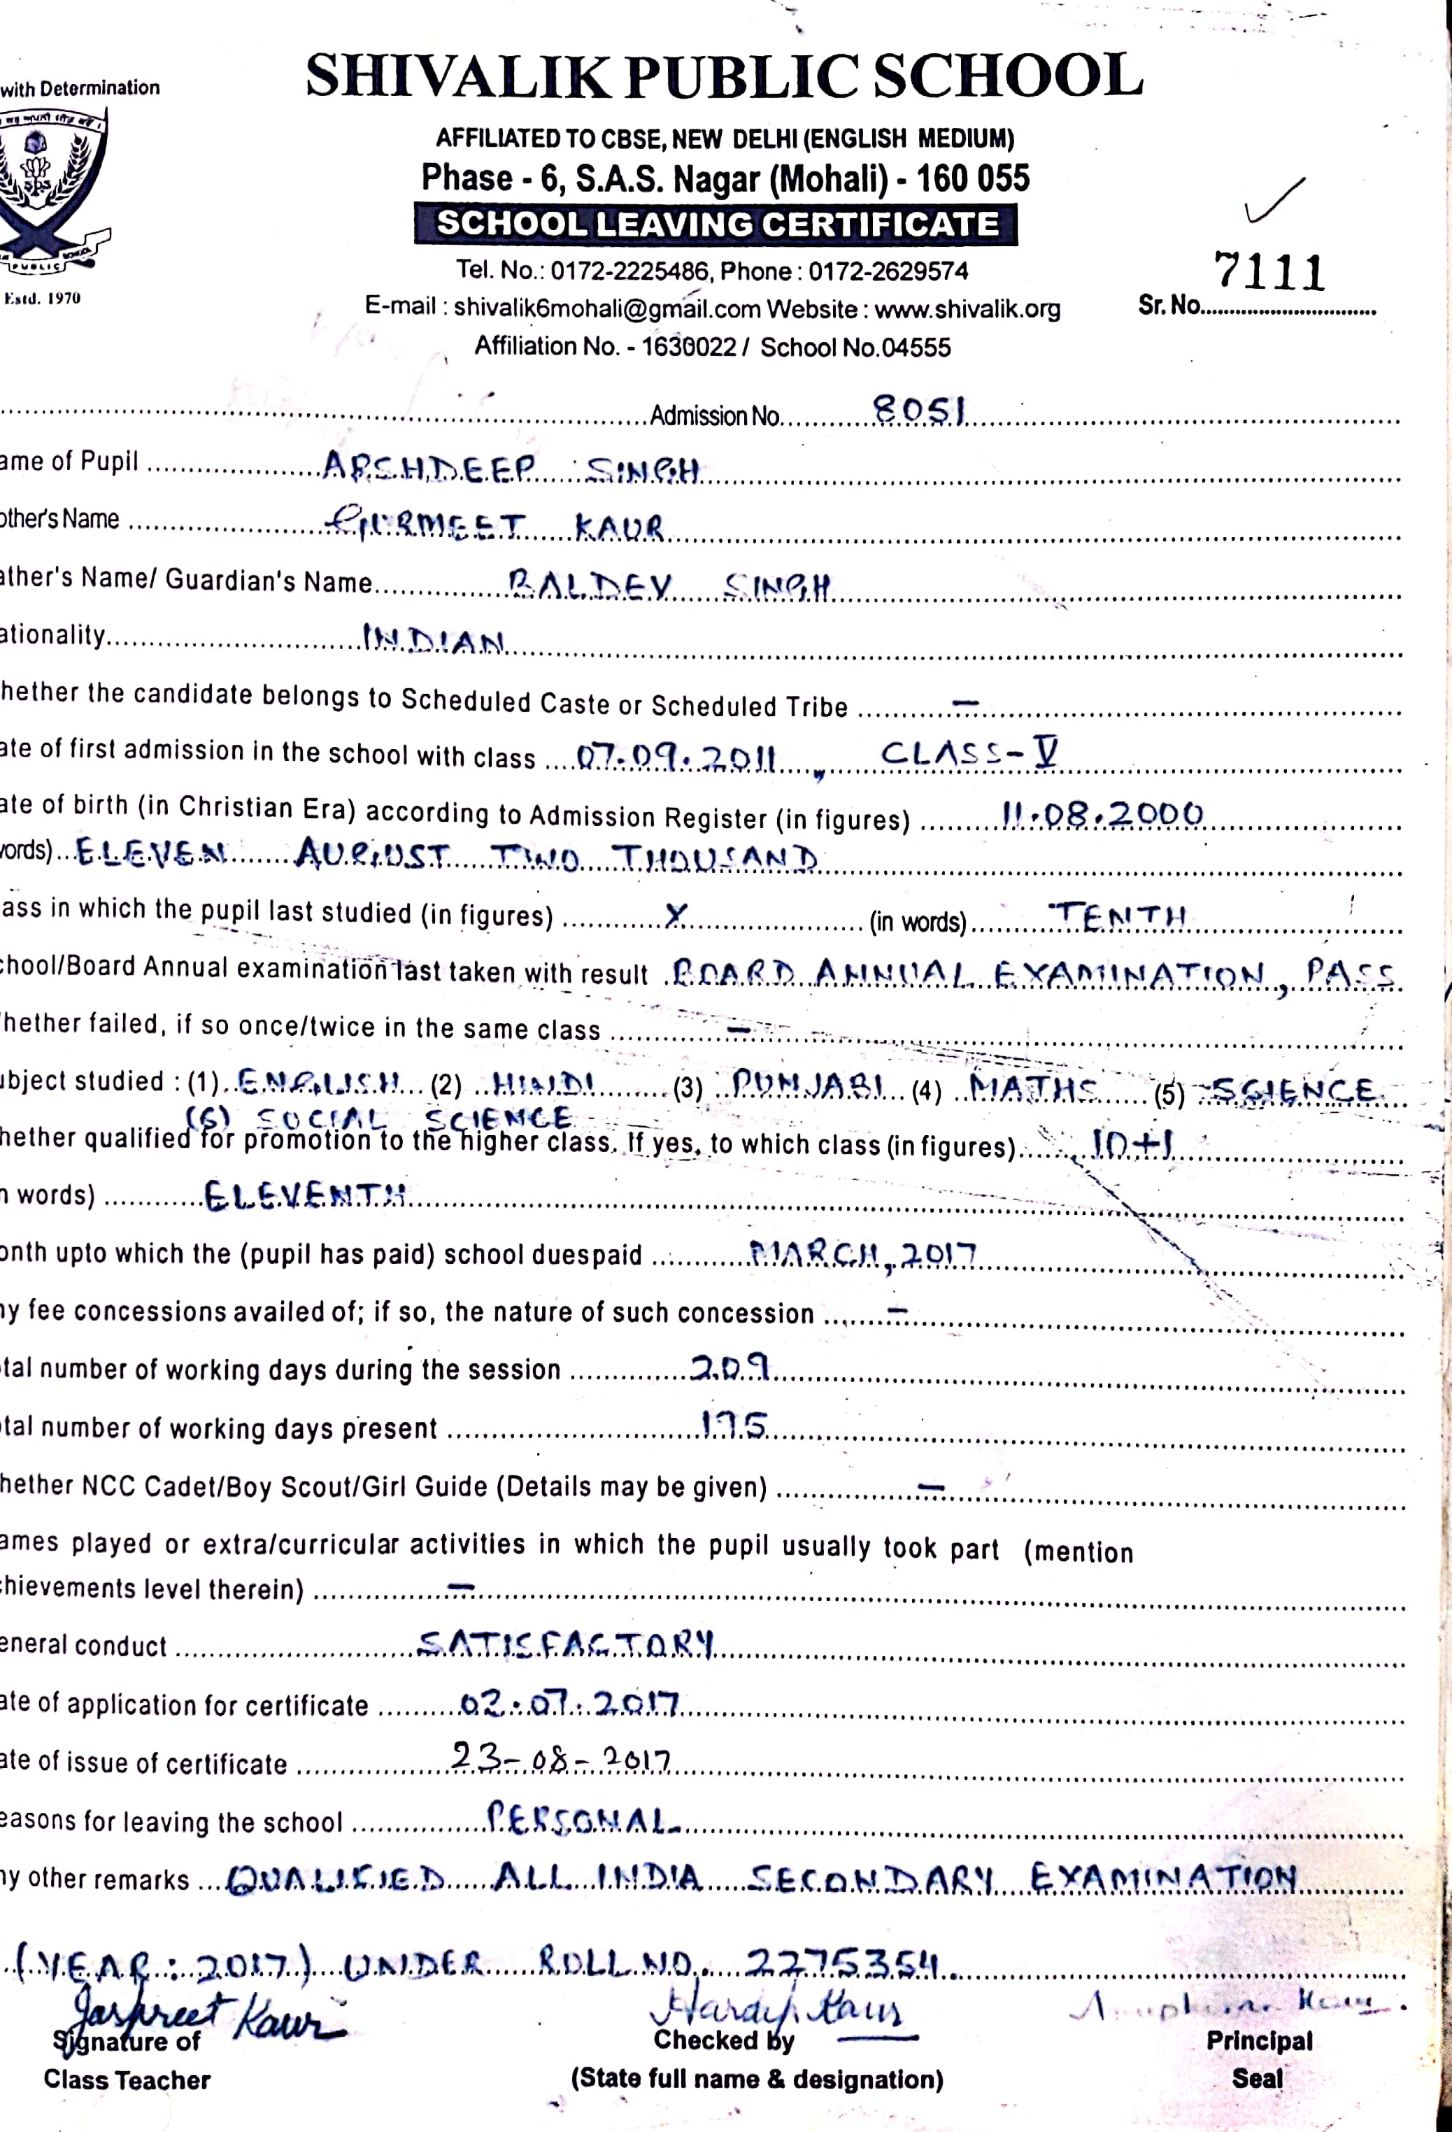 with Determination
SHIVALIK PUBLIC SCHOOL
AFFILIATED TO CBSE, NEW DELHI (ENGLISH MEDIUM)
Phase - 6, S.A.S. Nagar (Mohali) - 160 055
SCHOOL LEAVING CERTIFICATE
Tel. No.: 0172-2225486, Phone : 0172-2629574
E-mail : shivalik6mohali@gmail.com Website : www.shivalik.org
Affiliation No. - 1630022 / School No.04555
SPS
PUBLIC
Estd. 1970
7111
Sr. No.
Admission No. 8051
ame of Pupil ARSHDEEP SINGH
other's Name GURMEET KAUR
ather's Name/ Guardian's Name BALDEV SINGH
ationality INDIAN
hether the candidate belongs to Scheduled Caste or Scheduled Tribe –
ate of first admission in the school with class 07.09.2011, CLASS-V
ate of birth (in Christian Era) according to Admission Register (in figures) 11.08.2000
vords) ELEVEN AUGUST TWO THOUSAND
ass in which the pupil last studied (in figures) X (in words) TENTH
chool/Board Annual examination last taken with result BOARD ANNUAL EXAMINATION, PASS
hether failed, if so once/twice in the same class –
ubject studied : (1) ENGLISH (2) HINDI (3) PUNJABI (4) MATHS (5) SCIENCE
(6) SOCIAL SCIENCE
hether qualified for promotion to the higher class. If yes, to which class (in figures) 10+1
n words) ELEVENTH
onth upto which the (pupil has paid) school duespaid MARCH, 2017
ny fee concessions availed of; if so, the nature of such concession –
tal number of working days during the session 209
tal number of working days present 175
hether NCC Cadet/Boy Scout/Girl Guide (Details may be given) –
ames played or extra/curricular activities in which the pupil usually took part (mention
chievements level therein) –
eneral conduct SATISFACTORY
ate of application for certificate 02.07.2017
ate of issue of certificate 23-08-2017
easons for leaving the school PERSONAL
ny other remarks QUALIFIED ALL INDIA SECONDARY EXAMINATION
(YEAR: 2017) UNDER ROLL NO. 2275354.
Jaspreet Kaur Hardip Kaur
Signature of Checked by Principal
Class Teacher (State full name & designation) Seal